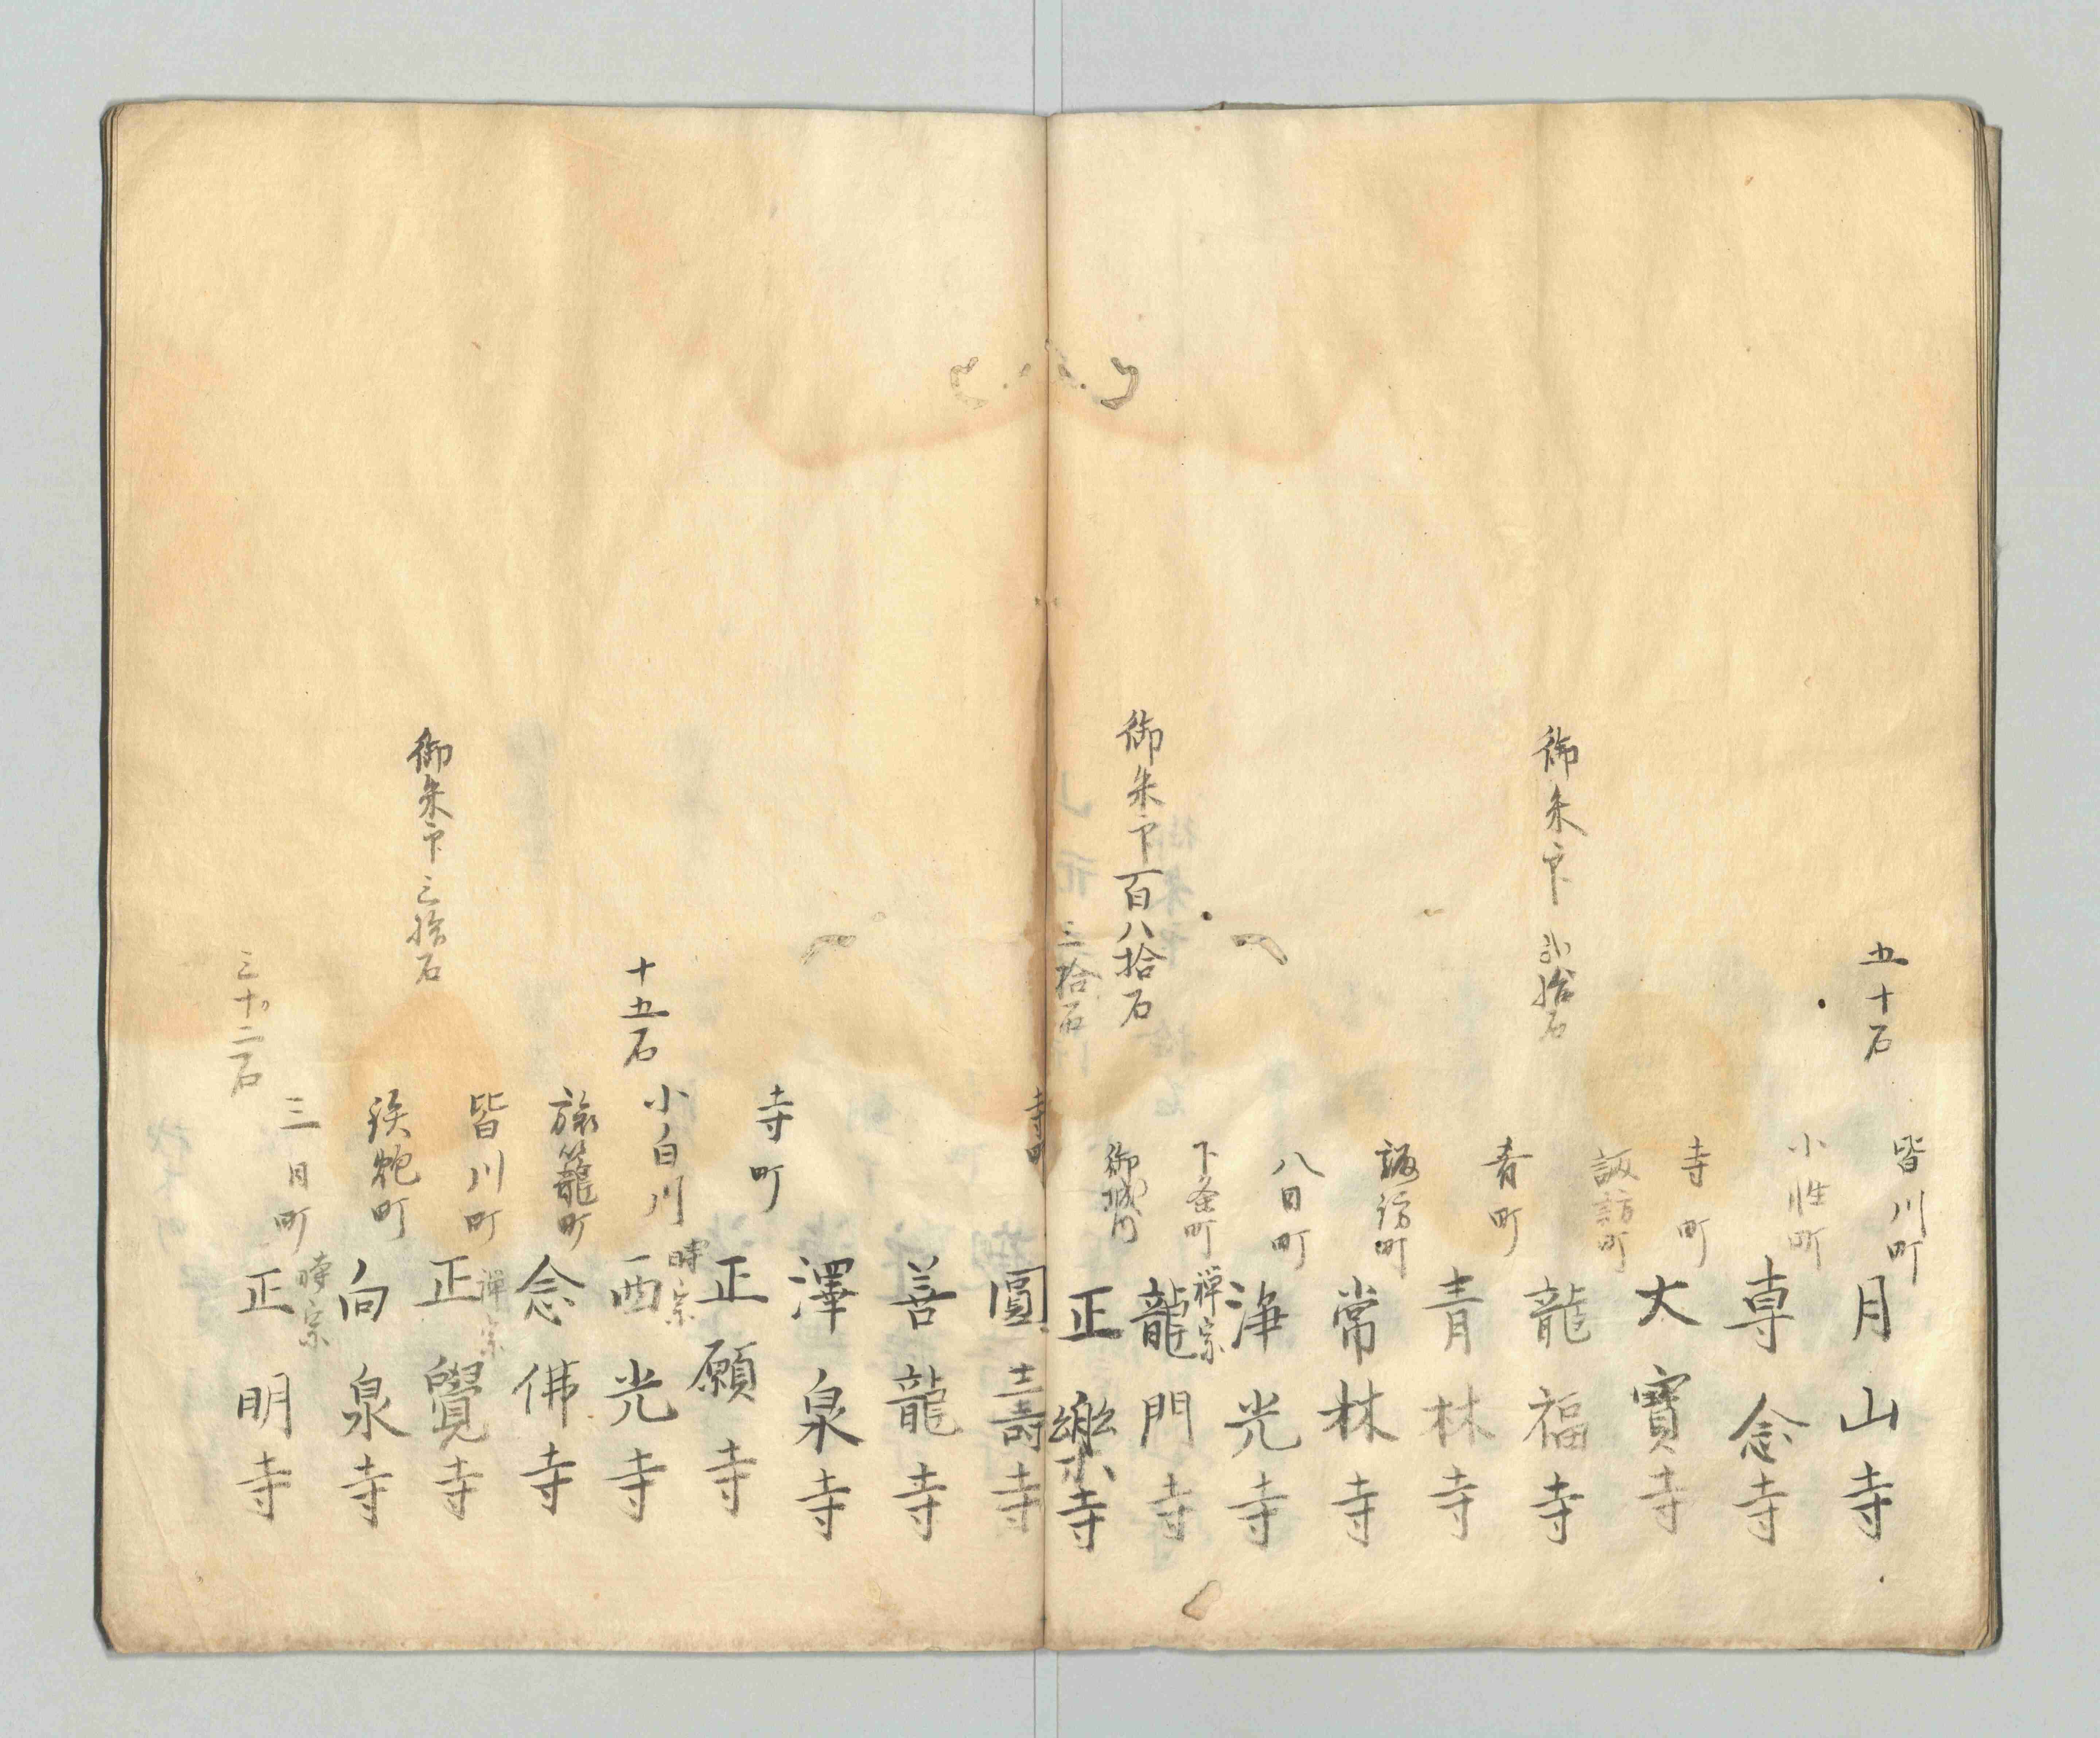 五十石
皆川町
月山寺
小性町
専念寺
寺町
大寶寺
御朱印 弐拾石
諏訪町
龍福寺
青町
青林寺
諏訪町
常林寺
八日町
浄光寺
御朱印百八拾石
下条町
禅宗
龍門寺
三拾石
御城内
正樂寺
寺町
圓壽寺
善龍寺
澤泉寺
寺町
正願寺
十五石
小白川
時宗
西光寺
旅籠町
念佛寺
御朱印三拾石
皆川町
禅宗
正覺寺
鉄炮町
向泉寺
三十二石
三日町
時宗
正明寺